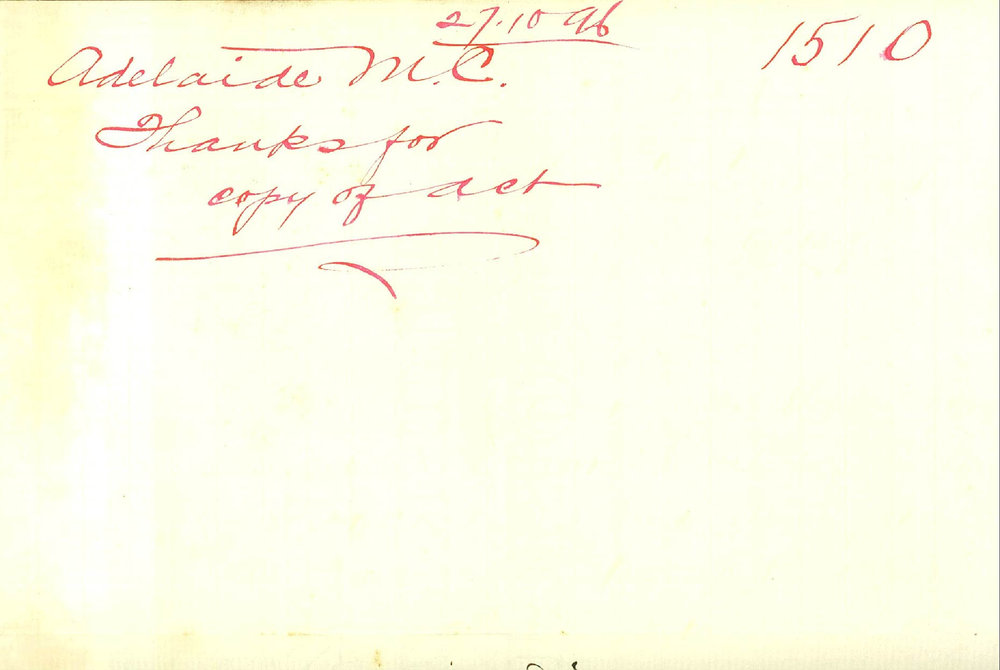 27.10.96
1510
Adelaide M.C.
Thanks for
copy of act